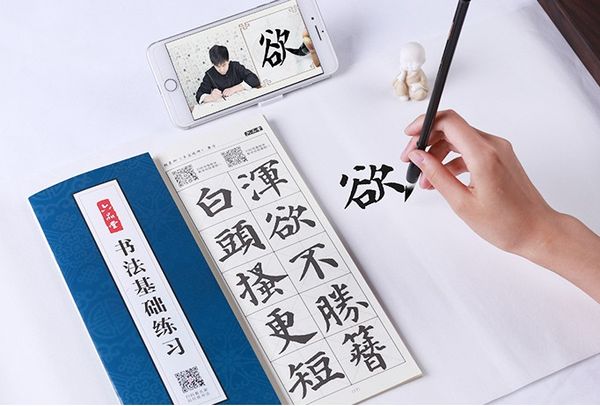 欲
六品堂
书法基础练习
六品堂
白頭搔更短
渾欲不勝簪
欲